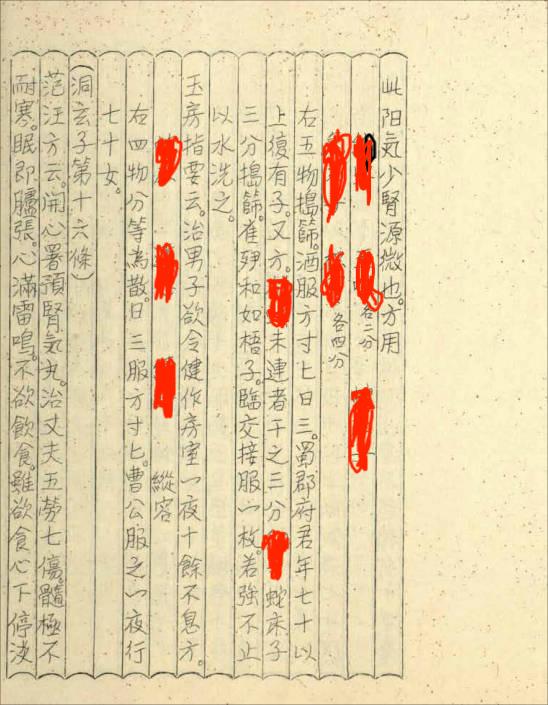 此阳氣少腎源微也。方用
各二分
各四分
右五物搗篩。酒服方寸匕日三。蜀郡府君年七十以
上復有子。又方。未連者干之三分蛇床子
三分搗篩。雀卵和如梧子。臨交接服一枚。若強不止
以水洗之。
玉房指要云。治男子欲令健作房室一夜十餘不息方。
縱容
右四物分等為散。日三服方寸匕。曹公服之一夜行
七十女。
(洞玄子第十六條)
范汪方云。開心署預腎氣丸。治丈夫五勞七傷。髓極不
耐寒。眠即臚張。心滿雷鳴。不欲飲食。雖欲食心下停